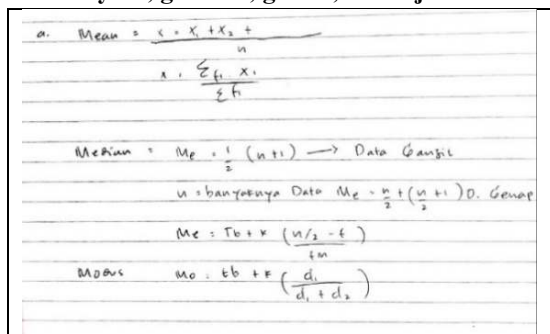 a. Mean = x = x₁ + x₂ +
n
x = Σf₁ x₁
Σf₁
Median = Me = 1/2 (n+1) → Data Ganjil
n = banyaknya Data Me = n/2 + (n/2 + 1) D. Genap
Me = Tb + k (n/2 - f)
fm
Modus Mo = tb + k (d₁ / d₁ + d₂)